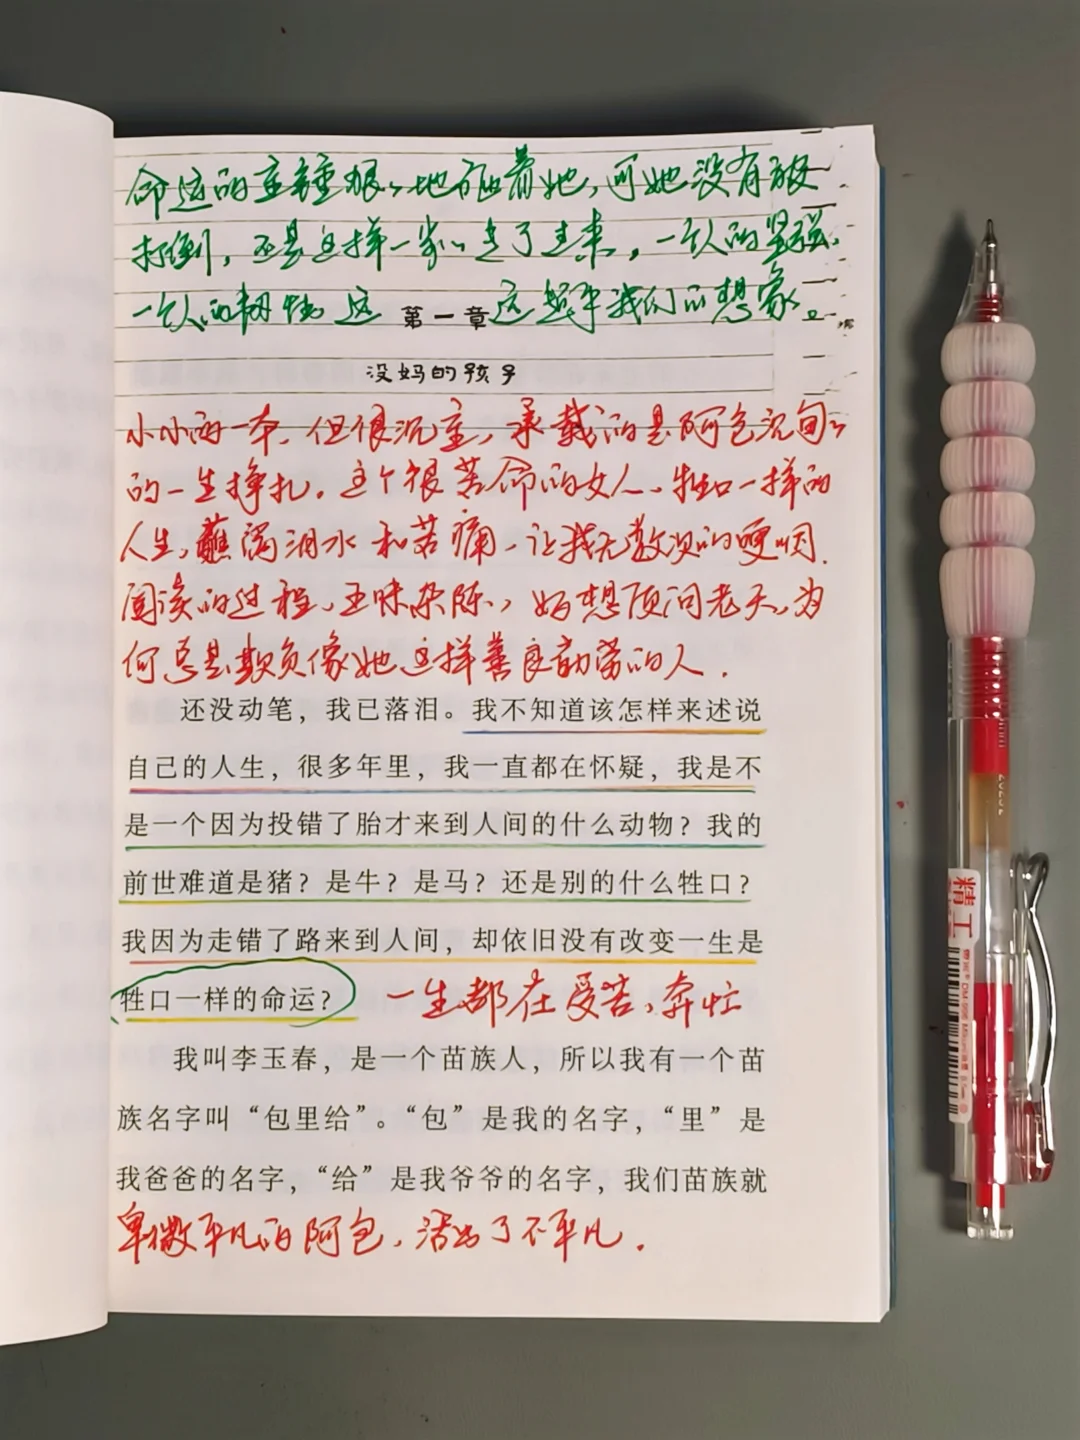 命运的重锤狠狠地砸着她，可她没有被
打倒，还是这样一步步走了过来，一个人的坚强、
一个人的韧性 这 第一章 这超乎我们的想象。
没妈的孩子
小小的一本，但很沉重，承载的是阿包沉甸甸
的一生挣扎。这个很苦命的女人，牲口一样的
人生，蘸满泪水和苦痛，让我无数次的哽咽.
阅读的过程，五味杂陈，好想质问老天，为
何总是欺负像她这样善良勤劳的人.
还没动笔，我已落泪。我不知道该怎样来述说
自己的人生，很多年里，我一直都在怀疑，我是不
是一个因为投错了胎才来到人间的什么动物？我的
前世难道是猪？是牛？是马？还是别的什么牲口？
我因为走错了路来到人间，却依旧没有改变一生是
牲口一样的命运？ 一生都在受苦、奔忙
我叫李玉春，是一个苗族人，所以我有一个苗
族名字叫“包里给”。“包”是我的名字，“里”是
我爸爸的名字，“给”是我爷爷的名字，我们苗族就
卑微平凡的阿包，活出了不平凡.
精工